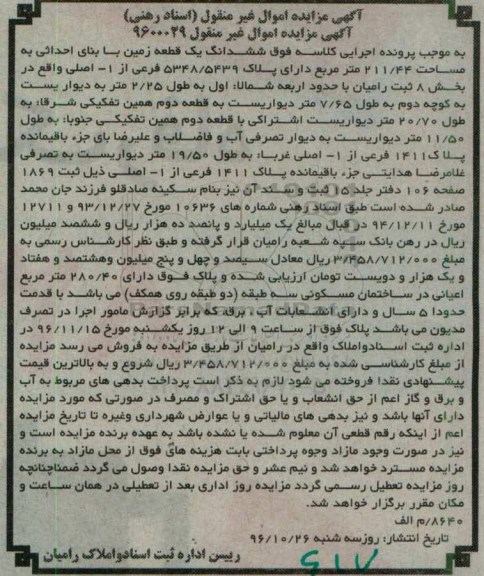 آگهی مزایده اموال غیر منقول (اسناد رهنی)
آگهی مزایده اموال غیر منقول ۹۶۰۰۰۲۹
به موجب پرونده اجرایی کلاسه فوق ششدانگ یک قطعه زمین با بنای احداثی به
مساحت ۲۱۱/۴۴ متر مربع دارای پلاک ۵۳۴۸/۵۴۳۹ فرعی از ۱- اصلی واقع در
بخش ۸ ثبت رامیان با حدود اربعه شمالا: اول به طول ۲/۲۵ متر به دیوار یست
به کوچه دوم به طول ۷/۶۵ متر دیواریست به قطعه دوم همین تفکیکی شرقا: به
طول ۲۰/۷۰ متر دیواریست اشتراکی با قطعه دوم همین تفکیکی جنوبا: به طول
۱۱/۵۰ متر دیواریست به دیوار تصرفی آب و فاضلاب و علیرضا بای جزء باقیمانده
پلاک ۱۴۱۱ فرعی از ۱- اصلی غربا: به طول ۱۹/۵۰ متر دیواریست به تصرفی
غلامرضا هدایتی جزء باقیمانده پلاک ۱۴۱۱ فرعی از ۱- اصلی ذیل ثبت ۱۸۶۹
صفحه ۱۰۶ دفتر جلد ۱۵ ثبت و سند آن نیز بنام سکینه صادقلو فرزند جان محمد
صادر شده است طبق اسناد رهنی شماره های ۱۰۶۳۶ مورخ ۹۳/۱۲/۲۷ و ۱۲۷۱۱
مورخ ۹۴/۱۲/۱۱ در قبال مبالغ یک میلیارد و پانصد ده هزار ریال و ششصد میلیون
ریال در رهن بانک سپه شعبه رامیان قرار گرفته و طبق نظر کارشناس رسمی به
مبلغ ۳/۴۵۸/۷۱۲/۰۰۰ ریال معادل سیصد و چهل و پنج میلیون وهشتصد و هفتاد
و یک هزار و دویست تومان ارزیابی شده و پلاک فوق دارای ۲۸۰/۴۰ متر مربع
اعیانی در ساختمان مسکونی سه طبقه (دو طبقه روی همکف) می باشد با قدمت
حدودا ۵ سال و دارای انشعابات آب ، برق، که برابر گزارش مامور اجرا در تصرف
مدیون می باشد پلاک فوق از ساعت ۹ الی ۱۲ روز یکشنبه مورخ ۹۶/۱۱/۱۵ در
اداره ثبت اسنادواملاک واقع در رامیان از طریق مزایده به فروش می رسد مزایده
از مبلغ کارشناسی شده به مبلغ ۳/۴۵۸/۷۱۲/۰۰۰ ریال شروع و به بالاترین قیمت
پیشنهادی نقدا فروخته می شود لازم به ذکر است پرداخت بدهی های مربوط به آب
و برق و گاز اعم از حق انشعاب و یا حق اشتراک و مصرف در صورتی که مورد مزایده
دارای آنها باشد و نیز بدهی های مالیاتی و یا عوارض شهرداری وغیره تا تاریخ مزایده
اعم از اینکه رقم قطعی آن معلوم شده یا نشده باشد به عهده برنده مزایده است و
نیز در صورت وجود مازاد وجوه پرداختی بابت هزینه های فوق از محل مازاد به برنده
مزایده مسترد خواهد شد و نیم عشر و حق مزایده نقدا وصول می گردد ضمناچنانچه
روز مزایده تعطیل رسمی گردد مزایده روز اداری بعد از تعطیلی در همان ساعت و
مکان مقرر برگزار خواهد شد.
۸۶۴۰/م الف
تاریخ انتشار: روزسه شنبه ۹۶/۱۰/۲۶
رییس اداره ثبت اسنادواملاک رامیان